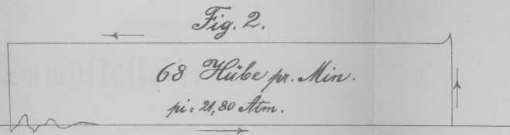 Fig. 2.
68 Hübe pr. Min.
pi = 21,80 Atm.